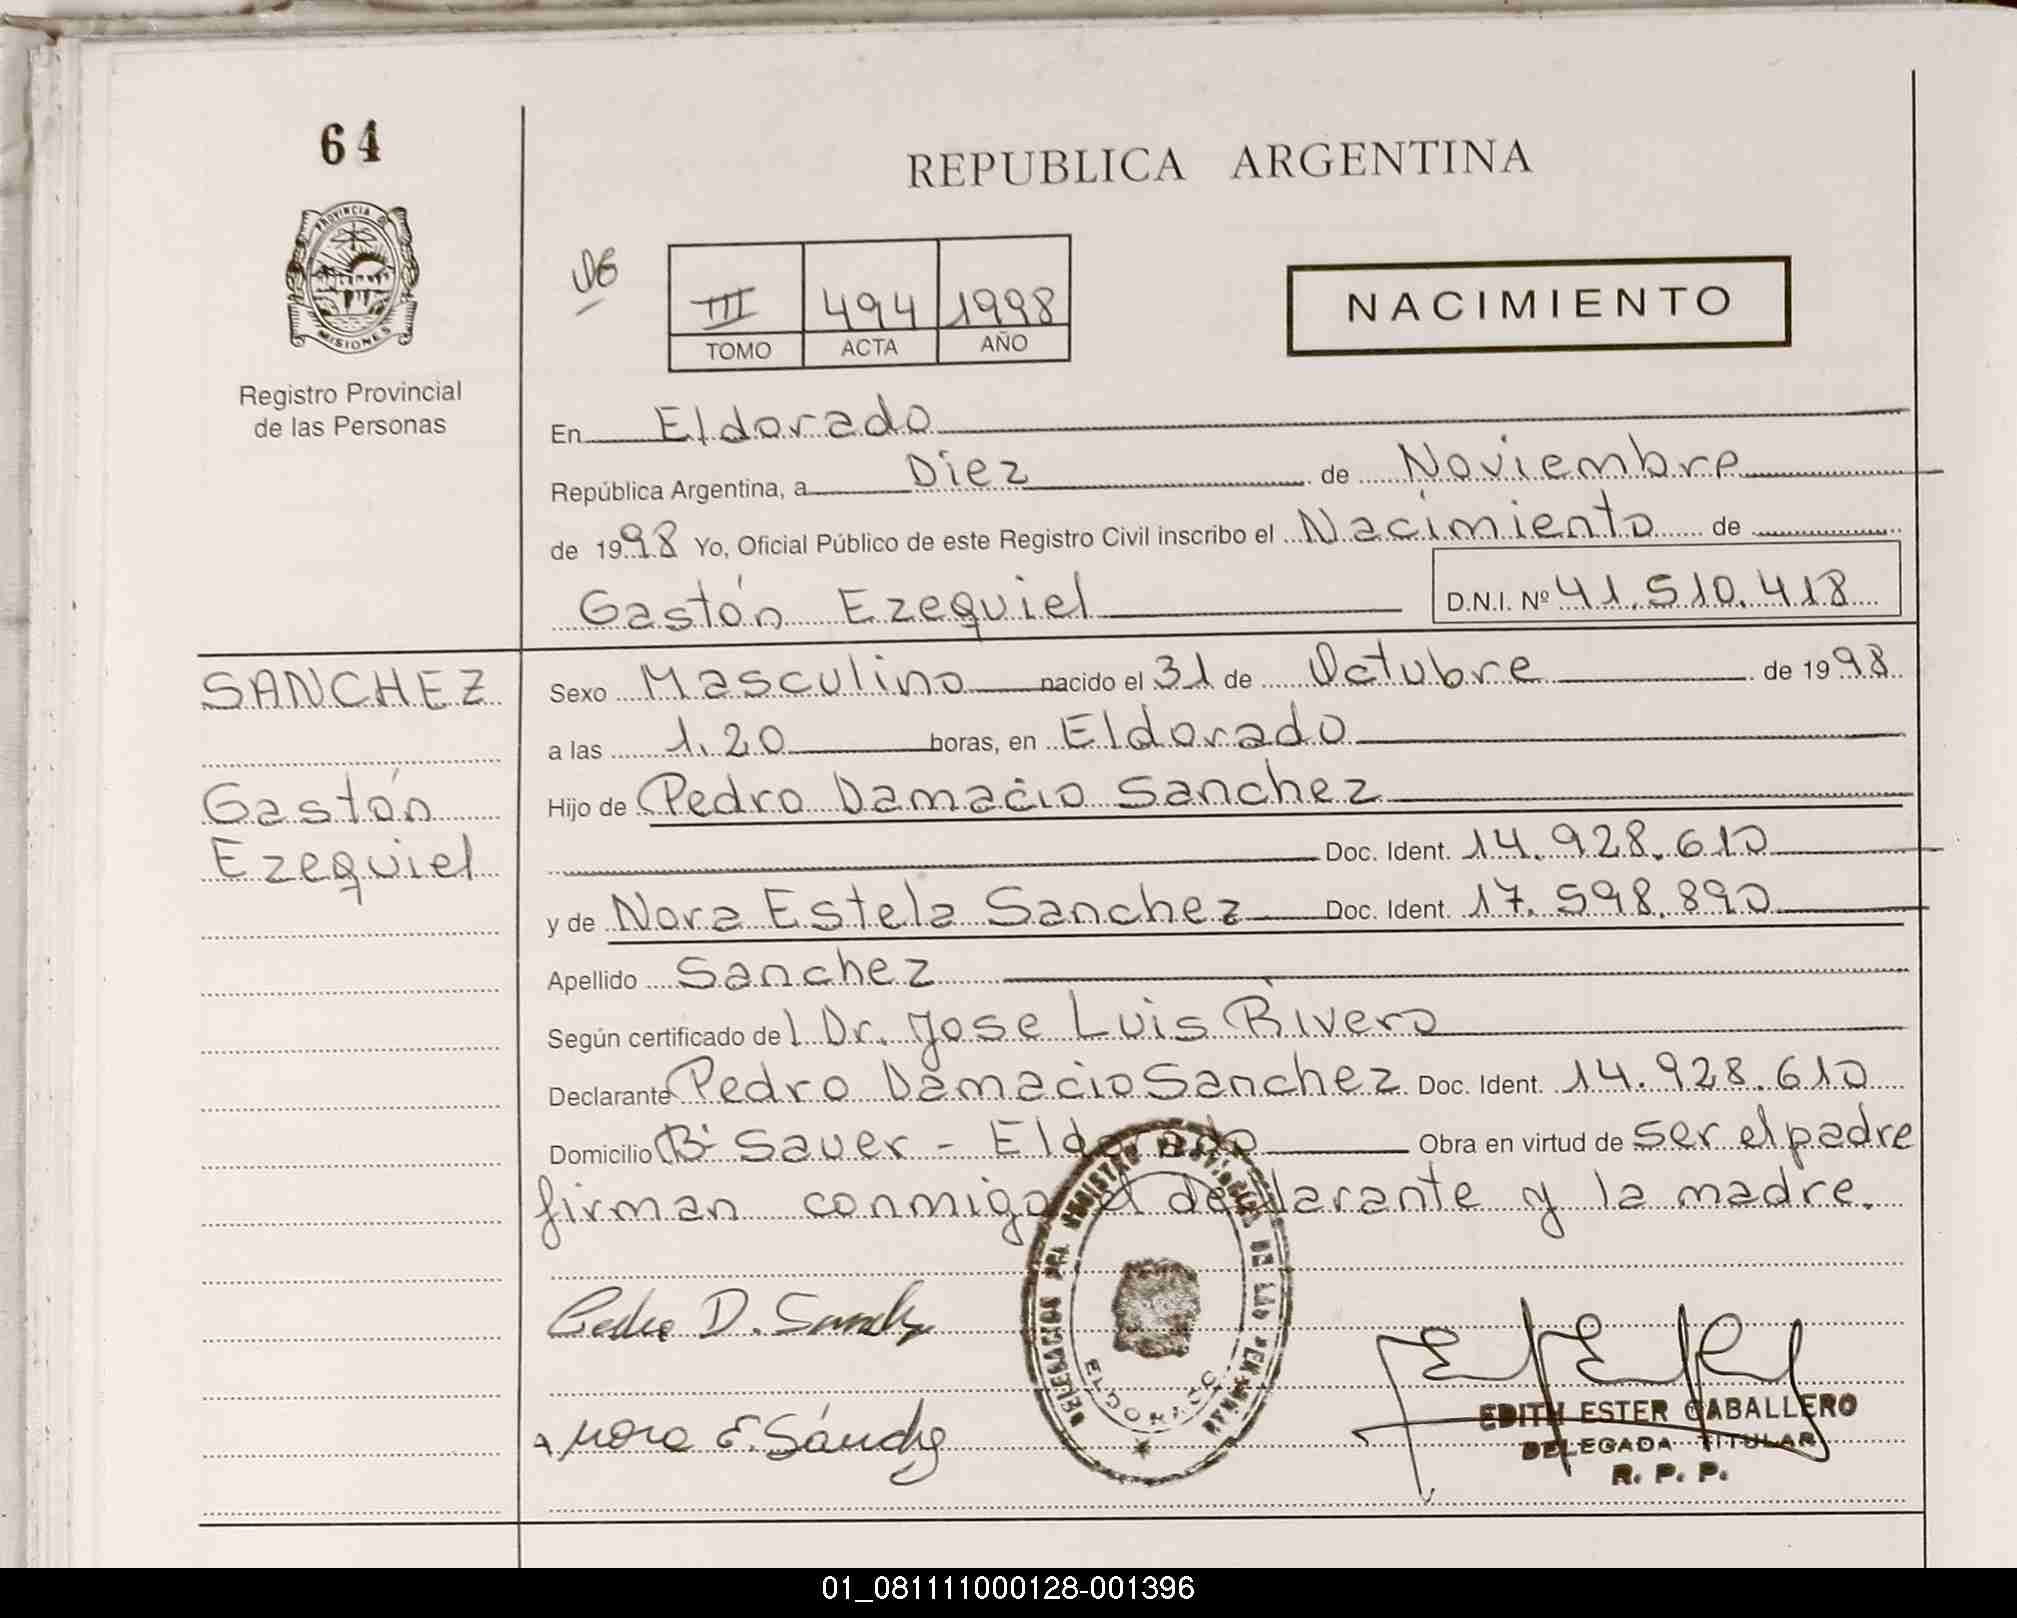 64
REPUBLICA ARGENTINA
PROVINCIA D
MISIONES
Registro Provincial
de las Personas
III 494 1998
TOMO ACTA AÑO
NACIMIENTO
En Eldorado
República Argentina, a Diez de Noviembre
de 1998 Yo, Oficial Público de este Registro Civil inscribo el Nacimiento de
Gastón Ezequiel D.N.I. Nº 41.510.418
SANCHEZ
Gastón
Ezequiel
Sexo Masculino nacido el 31 de Octubre de 1998
a las 1.20 horas, en Eldorado
Hijo de Pedro Damacio Sanchez
Doc. Ident. 14.928.610
y de Nora Estela Sanchez Doc. Ident. 17.598.890
Apellido Sanchez
Según certificado de l Dr. Jose Luis Rivero
Declarante Pedro Damacio Sanchez Doc. Ident. 14.928.610
Domicilio Bº Sauer - Eldorado Obra en virtud de ser el padre
firman conmigo el declarante y la madre.
Pedro D. Sanchez
Nora E. Sánchez
DELEGACION DEL REGISTRO PROVINCIAL DE LAS PERSONAS
ELDORADO
EDITH ESTER CABALLERO
DELEGADA TITULAR
R. P. P.
01_081111000128-001396